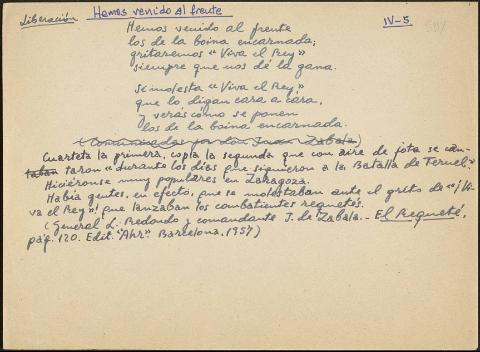 Liberación Hemos venido al frente IV-5
Hemos venido al frente
los de la boina encarnada;
gritaremos "Viva el Rey"
siempre que nos dé la gana.
Si molesta "Viva el Rey,"
que lo digan cara a cara,
y verás cómo se ponen
los de la boina encarnada.
(Comunicadas por don Juan Zabala)
Cuarteta la primera, copla la segunda que con aire de jota se can-
taban taron "durante los días que siguieron a la Batalla de Teruel."
Hiciéronse muy populares en Zaragoza.
Había gentes, en efecto, que se molestaban ante el grito de "¡Vi-
va el Rey", que lanzaban los combatientes requetés.
(General L. Redondo y comandante J. de Zabala.- El Requeté,
pág. 120. Edit. "Ahr". Barcelona, 1957)